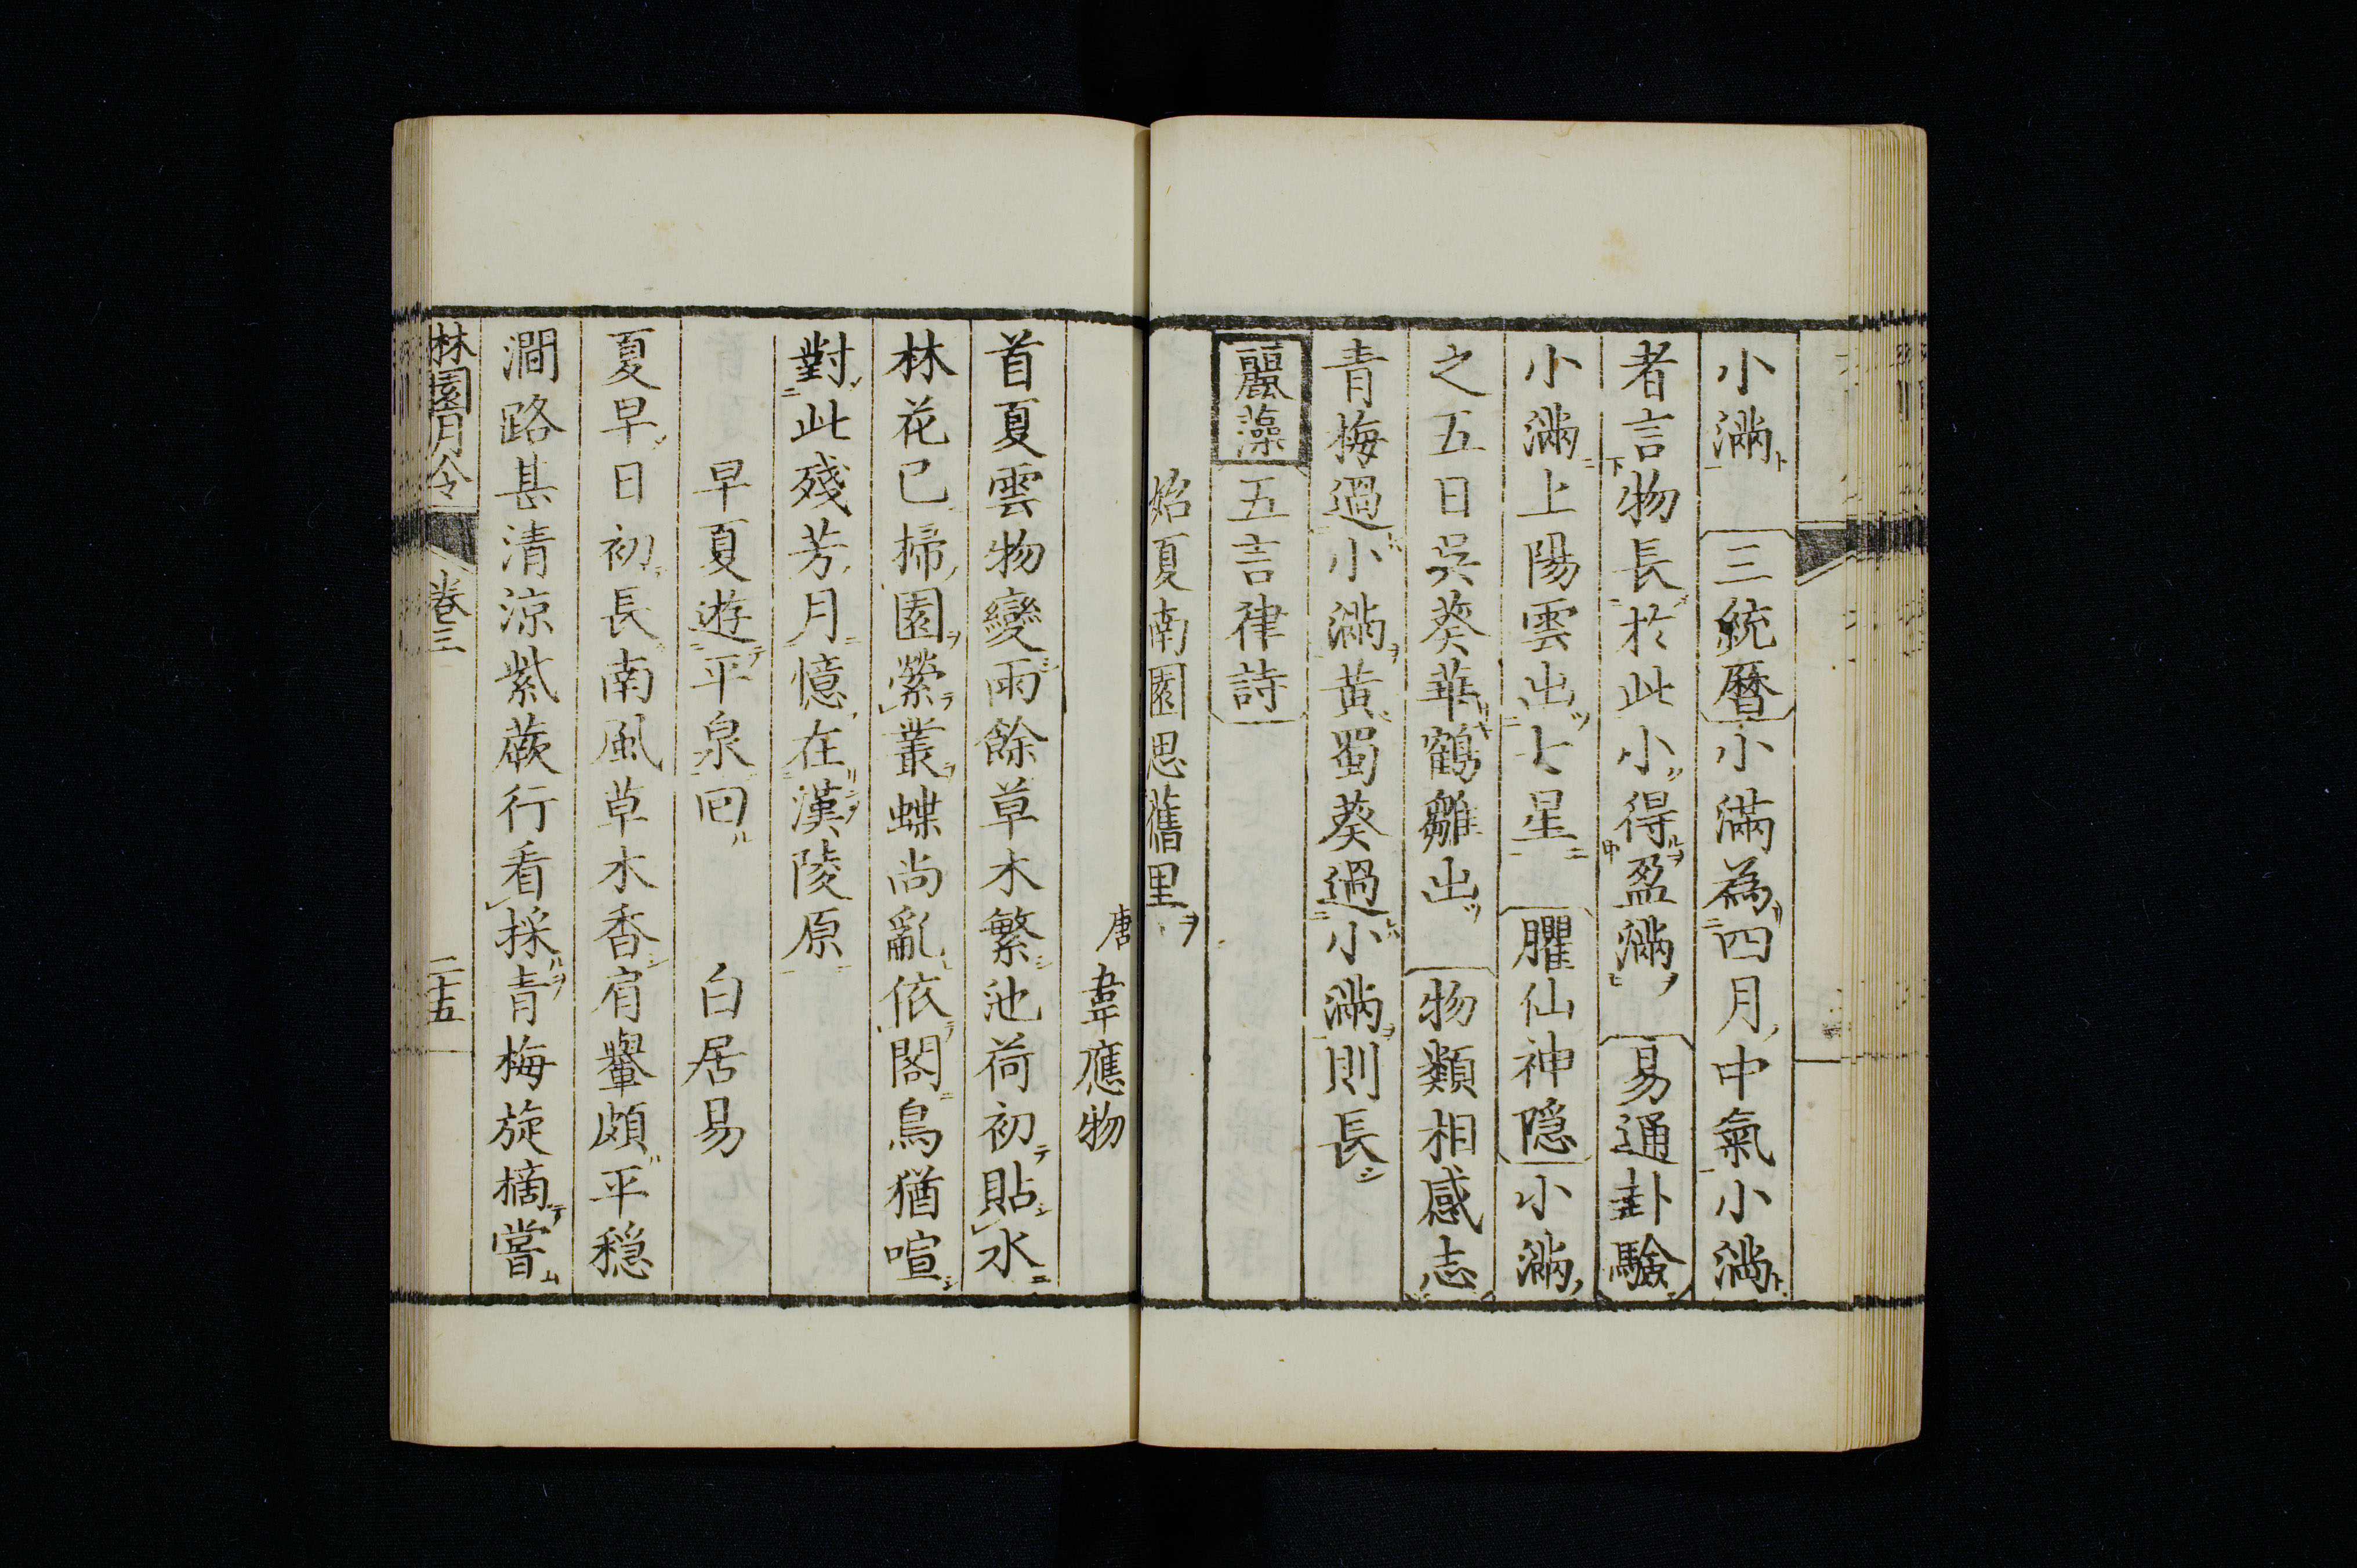 小滿 三統曆小滿為四月中氣小滿
者言物長於此小得盈滿 易通卦驗
小滿上陽雲出七星 臞仙神隠小滿
之五日吳葵華鶴雛出 物類相感志
青梅過小滿黃蜀葵過小滿則長
麗藻 五言律詩
始夏南園思舊里
唐 韋應物
首夏雲物變雨餘草木繁池荷初貼水
林花已掃園縈叢蝶尚亂依閣鳥猶喧
對此殘芳月憶在漢陵原
早夏遊平泉回 白居易
夏早日初長南風草木香肩轝頗平穏
澗路甚清涼紫蕨行看採青梅旋摘嘗
林園月令 卷三 二十五